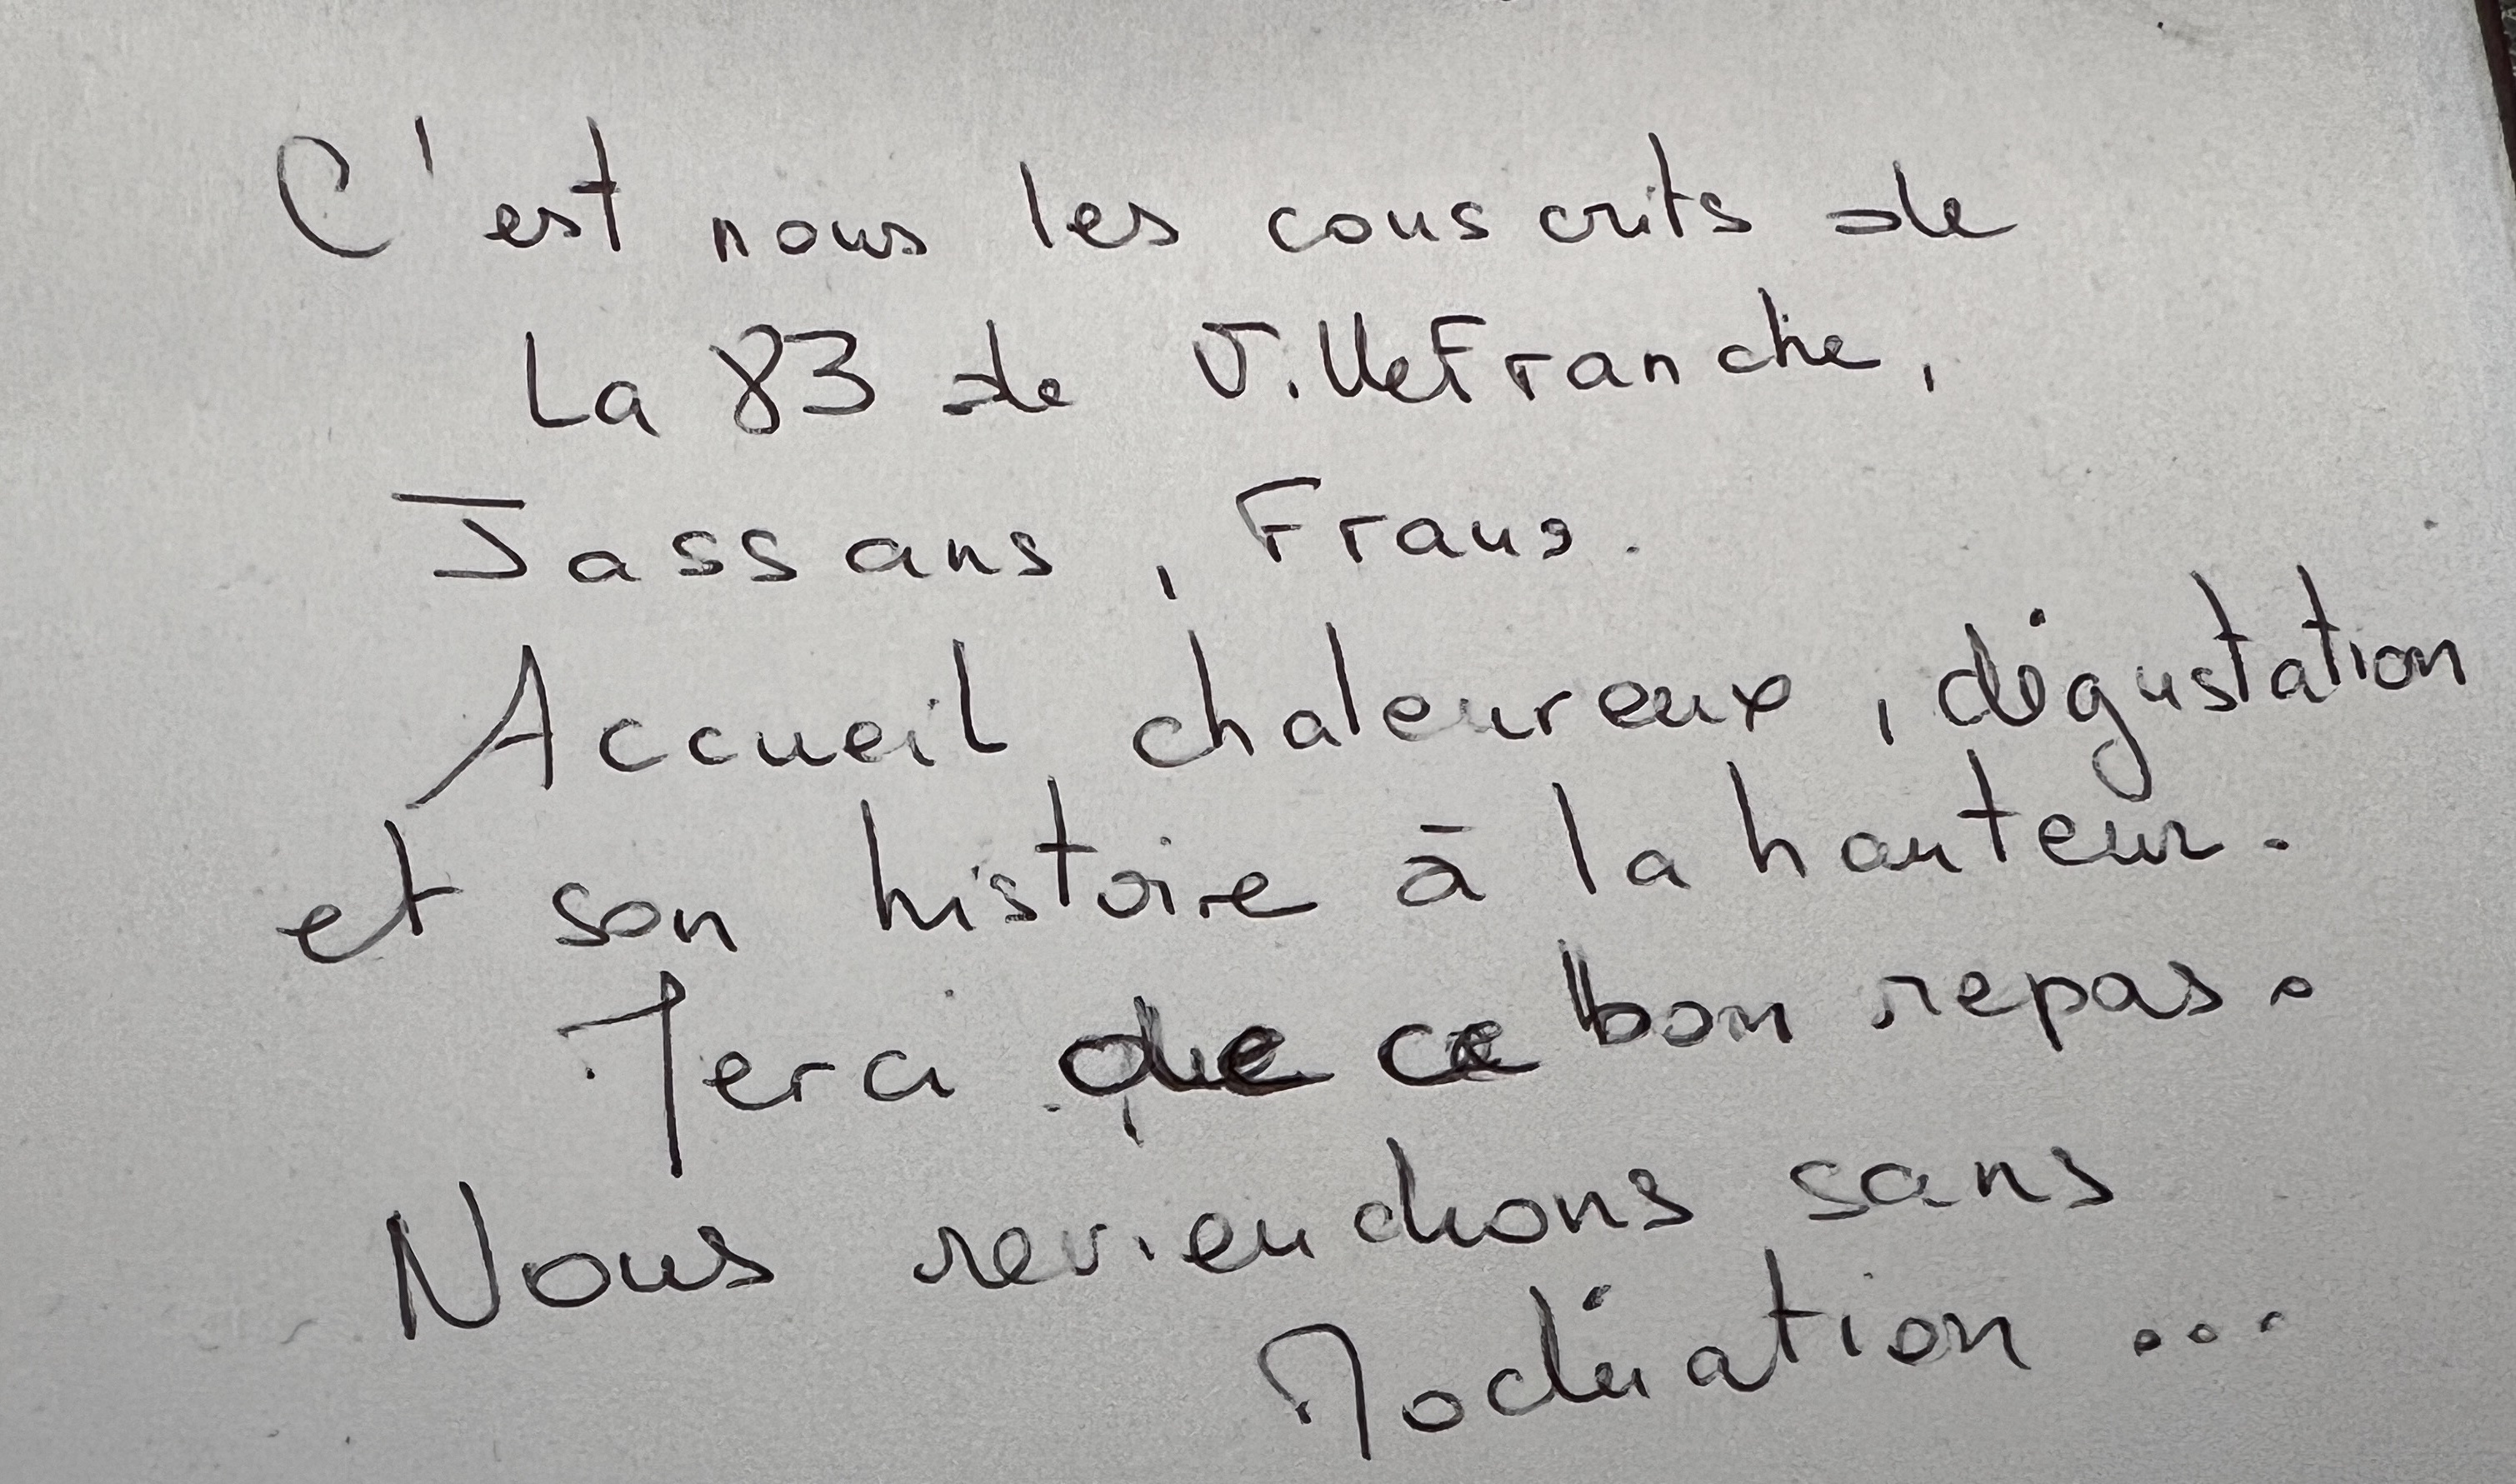 C'est nous les conscrits de
La 83 de VilleFranche,
Jassans, Frans.
Accueil chaleureux, dégustation
et son histoire à la hauteur.
Merci de ce bon repas.
Nous reviendrons sans
Modération...